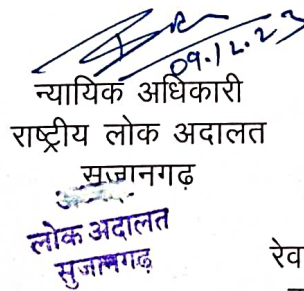 09.12.23
न्यायिक अधिकारी
राष्ट्रीय लोक अदालत
सुजानगढ़
लोक अदालत
सुजानगढ़
रेव